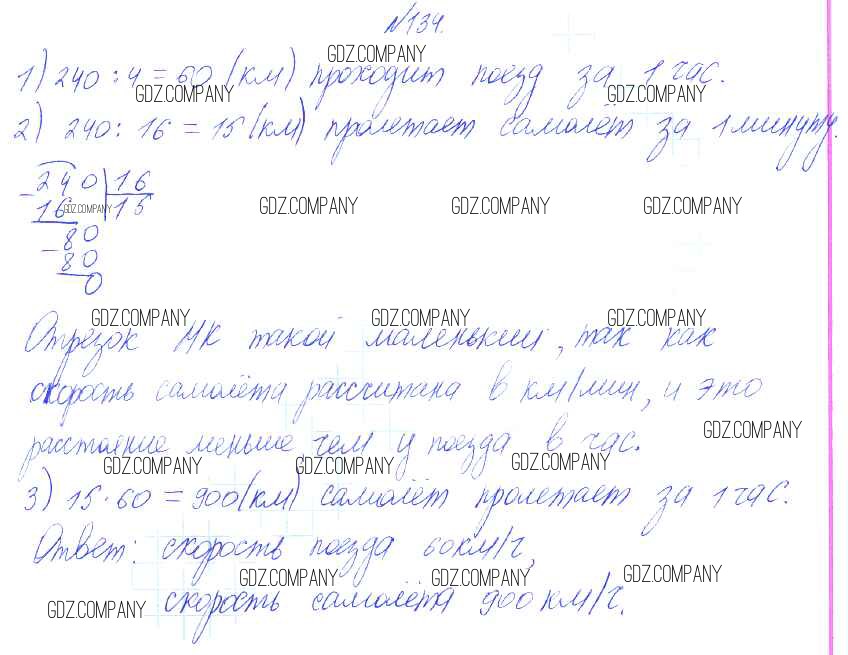 №134.
GDZ.COMPANY
1) 240 : 4 = 60 (км) проходит поезд за 1 час.
GDZ.COMPANY GDZ.COMPANY
2) 240 : 16 = 15 (км) пролетает самолёт за 1 минуту.
240 | 16
16 15
GDZ.COMPANY GDZ.COMPANY GDZ.COMPANY GDZ.COMPANY
80
80
0
GDZ.COMPANY GDZ.COMPANY GDZ.COMPANY
Отрезок МК такой маленький, так как
скорость самолёта рассчитана в км/мин, и это
расстояние меньше, чем у поезда в час.
GDZ.COMPANY
GDZ.COMPANY GDZ.COMPANY GDZ.COMPANY
3) 15 · 60 = 900 (км) самолёт пролетает за 1 час.
Ответ: скорость поезда 60 км/ч,
GDZ.COMPANY GDZ.COMPANY GDZ.COMPANY
скорость самолёта 900 км/ч.
GDZ.COMPANY